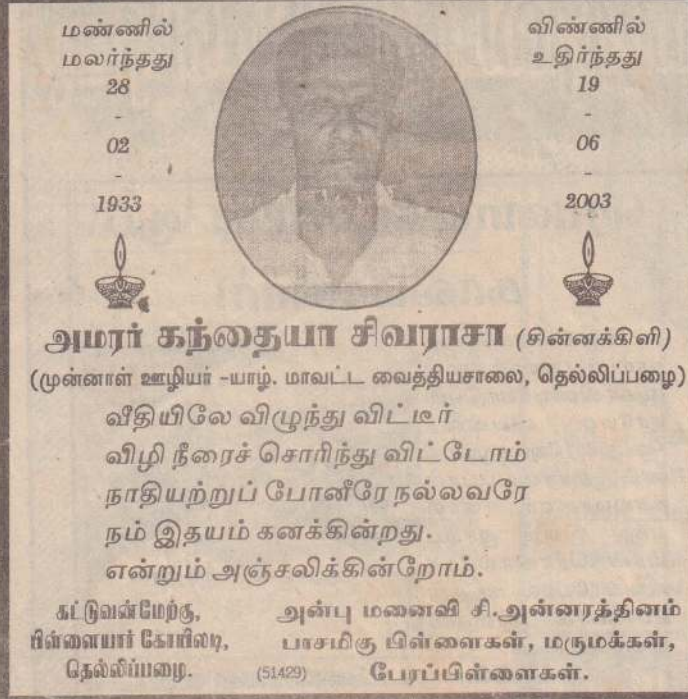 மண்ணில்
மலர்ந்தது
28
-
02
-
1933
விண்ணில்
உதிர்ந்தது
19
-
06
-
2003
அமரர் கந்தையா சிவராசா (சின்னக்கிளி)
(முன்னாள் ஊழியர் -யாழ். மாவட்ட வைத்தியசாலை, தெல்லிப்பழை)
வீதியிலே விழுந்து விட்டீர்
விழி நீரைச் சொரிந்து விட்டோம்
நாதியற்றுப் போனீரே நல்லவரே
நம் இதயம் கனக்கின்றது.
என்றும் அஞ்சலிக்கின்றோம்.
கட்டுவன்மேற்கு,
பிள்ளையார் கோயிலடி,
தெல்லிப்பழை.
(51429)
அன்பு மனைவி சி.அன்னரத்தினம்
பாசமிகு பிள்ளைகள், மருமக்கள்,
பேரப்பிள்ளைகள்.